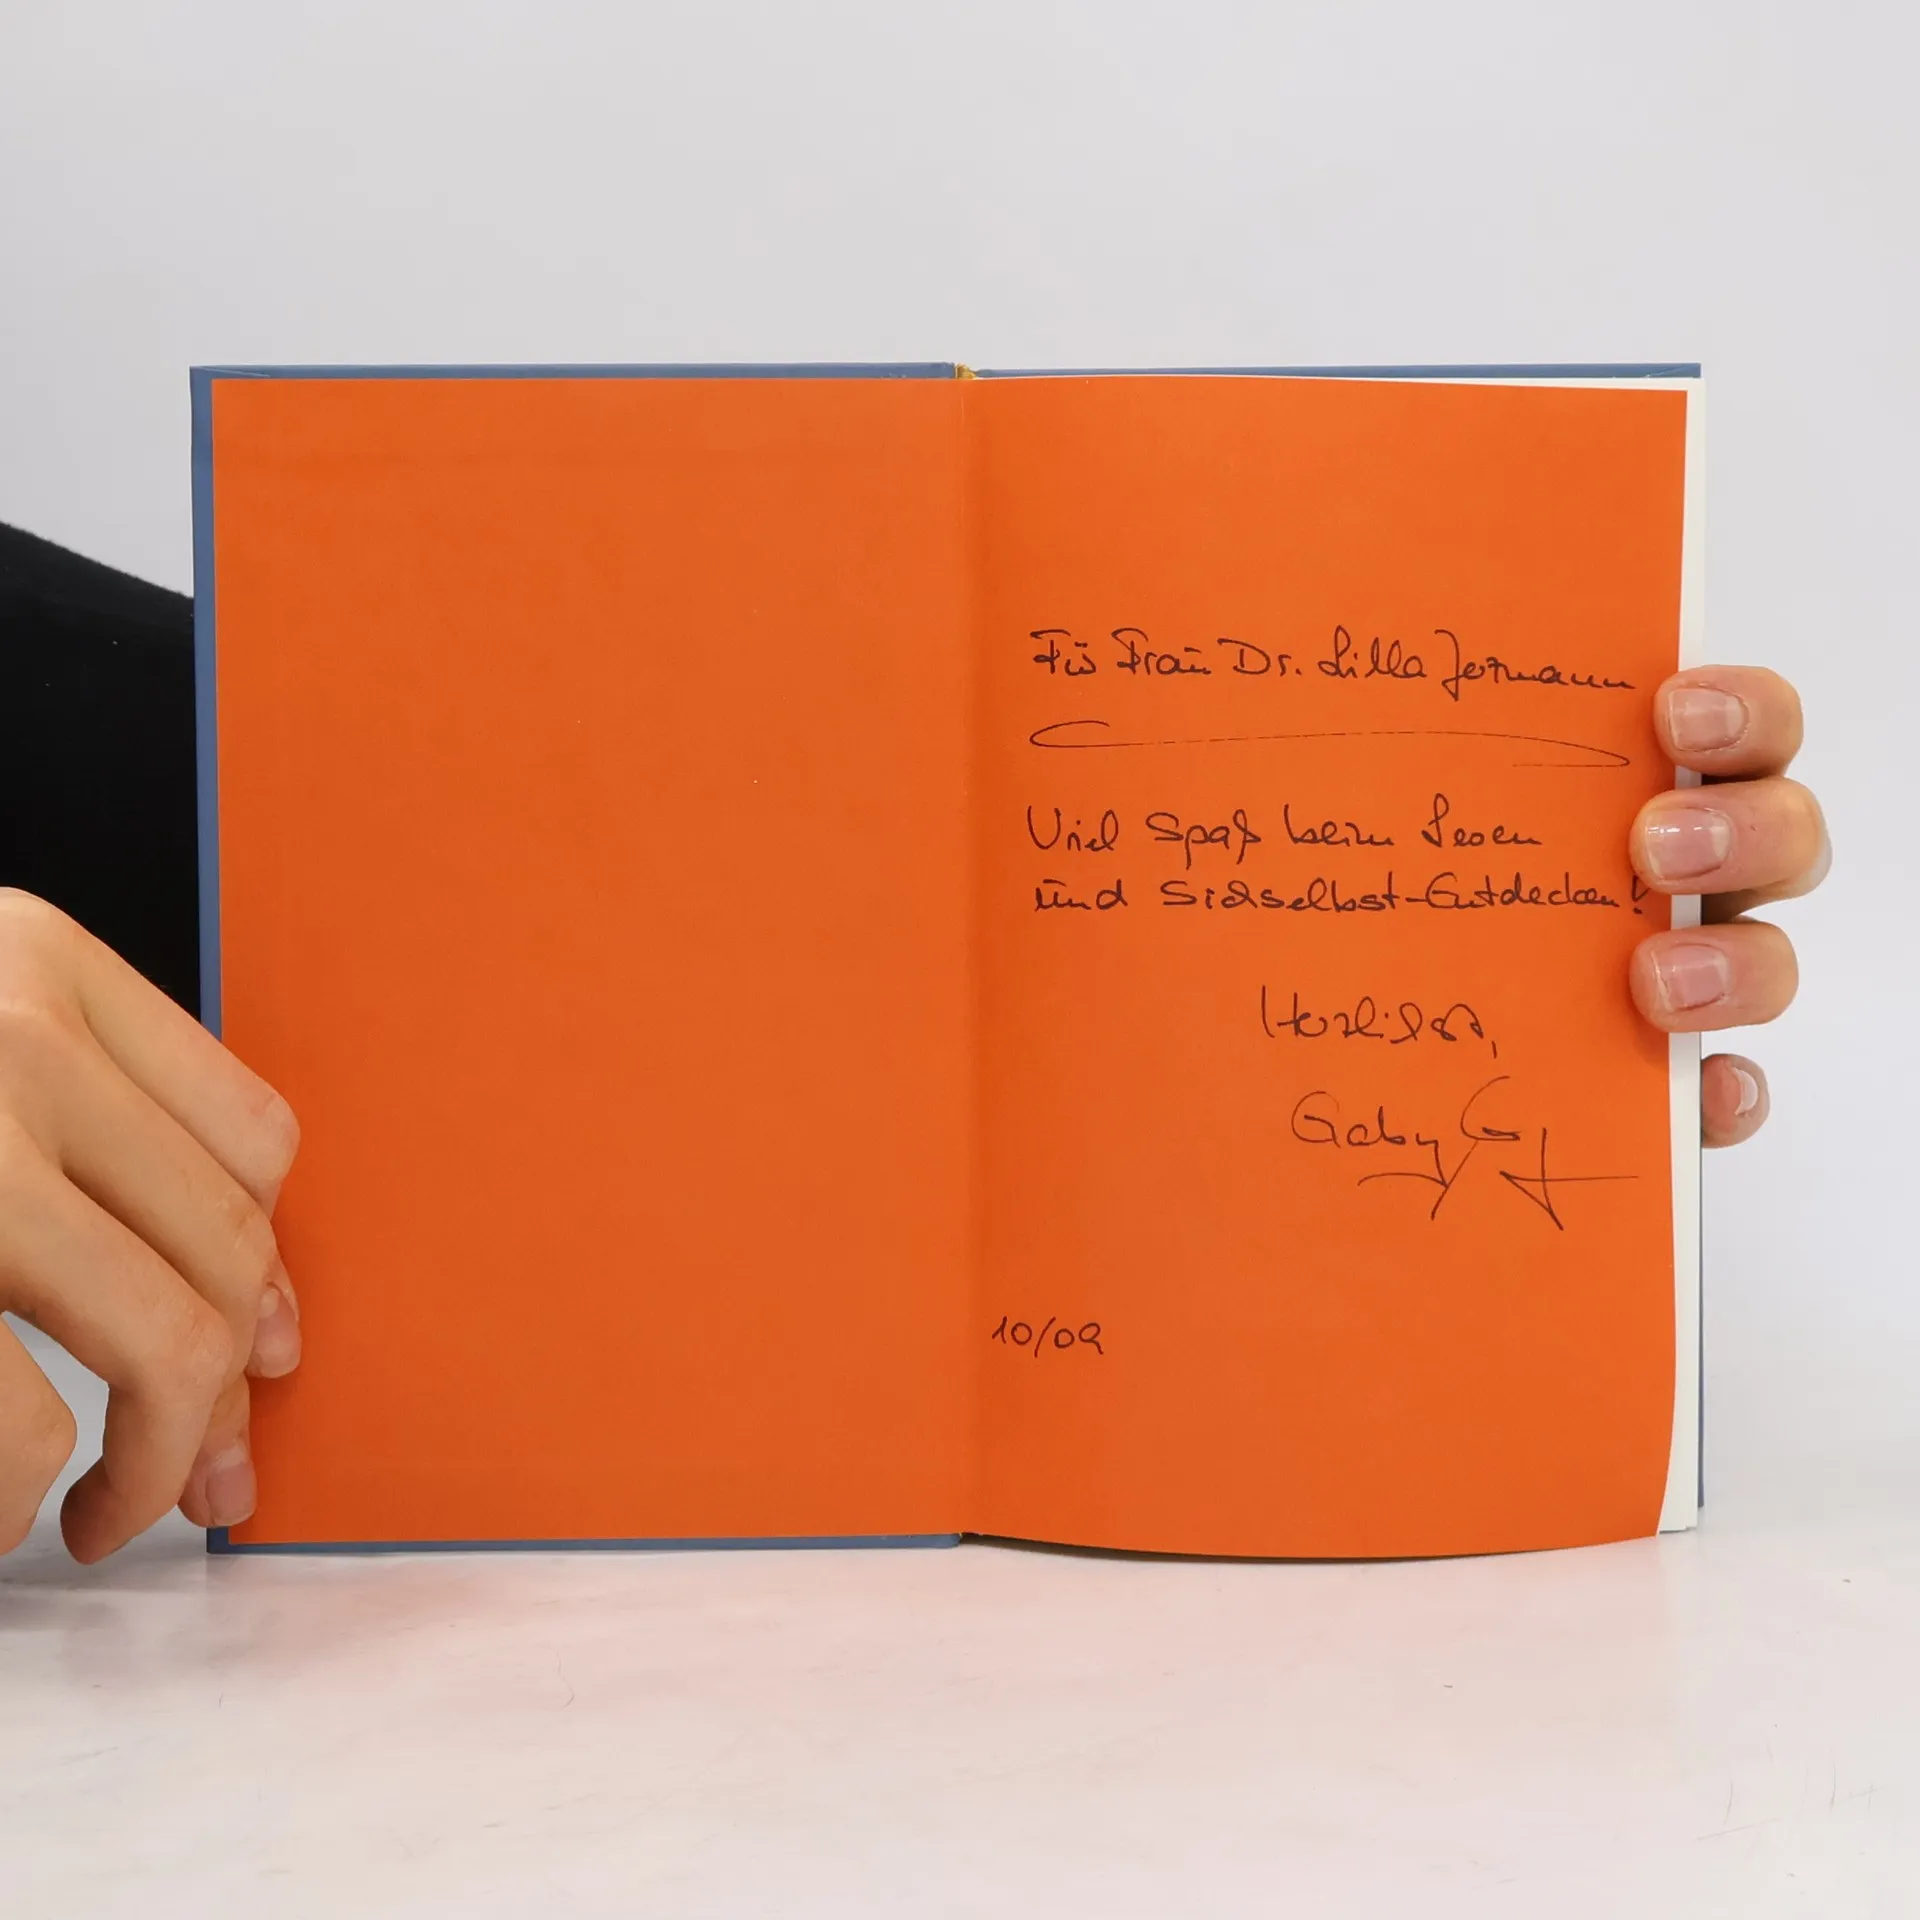 Für Frau Dr. Lilla
Viel Spaß beim Lesen
und Sichselbst-Entdecken!
Herzlichst,
Gaby
10/09